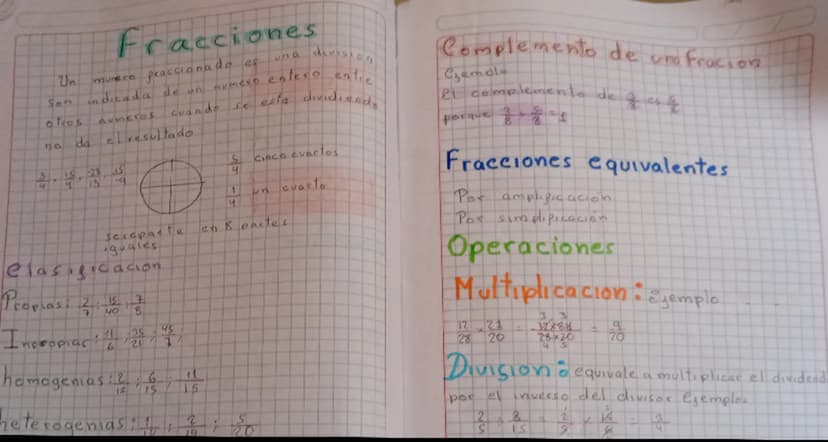 Fracciones
Un numero fraccionado es una division
sen indicada de un numero entero entre
otros numeros cuando se esta dividiendo
no da el resultado
5/4 cinco cuartos
1/4 un cuarto
se reparte en 8 partes
iguales
Clasificacion
Propias: 2/7, 15/40, 7/8
Impropias: 11/6, 35/21, 45/7
homogenias: 2/15; 6/15; 11/15
heterogenias:
Complemento de una Fracion
Ejemplo
El complemento de
porque 3/8 + 5/8 = 1
Fracciones equivalentes
Por amplificacion
Por simplificacion
Operaciones
Multiplicacion: Ejemplo
12/28 × 21/20 = 12×21/28×20 = 9/20
Division: equivale a multiplicar el dividend
por el inverso del divisor Ejemplo